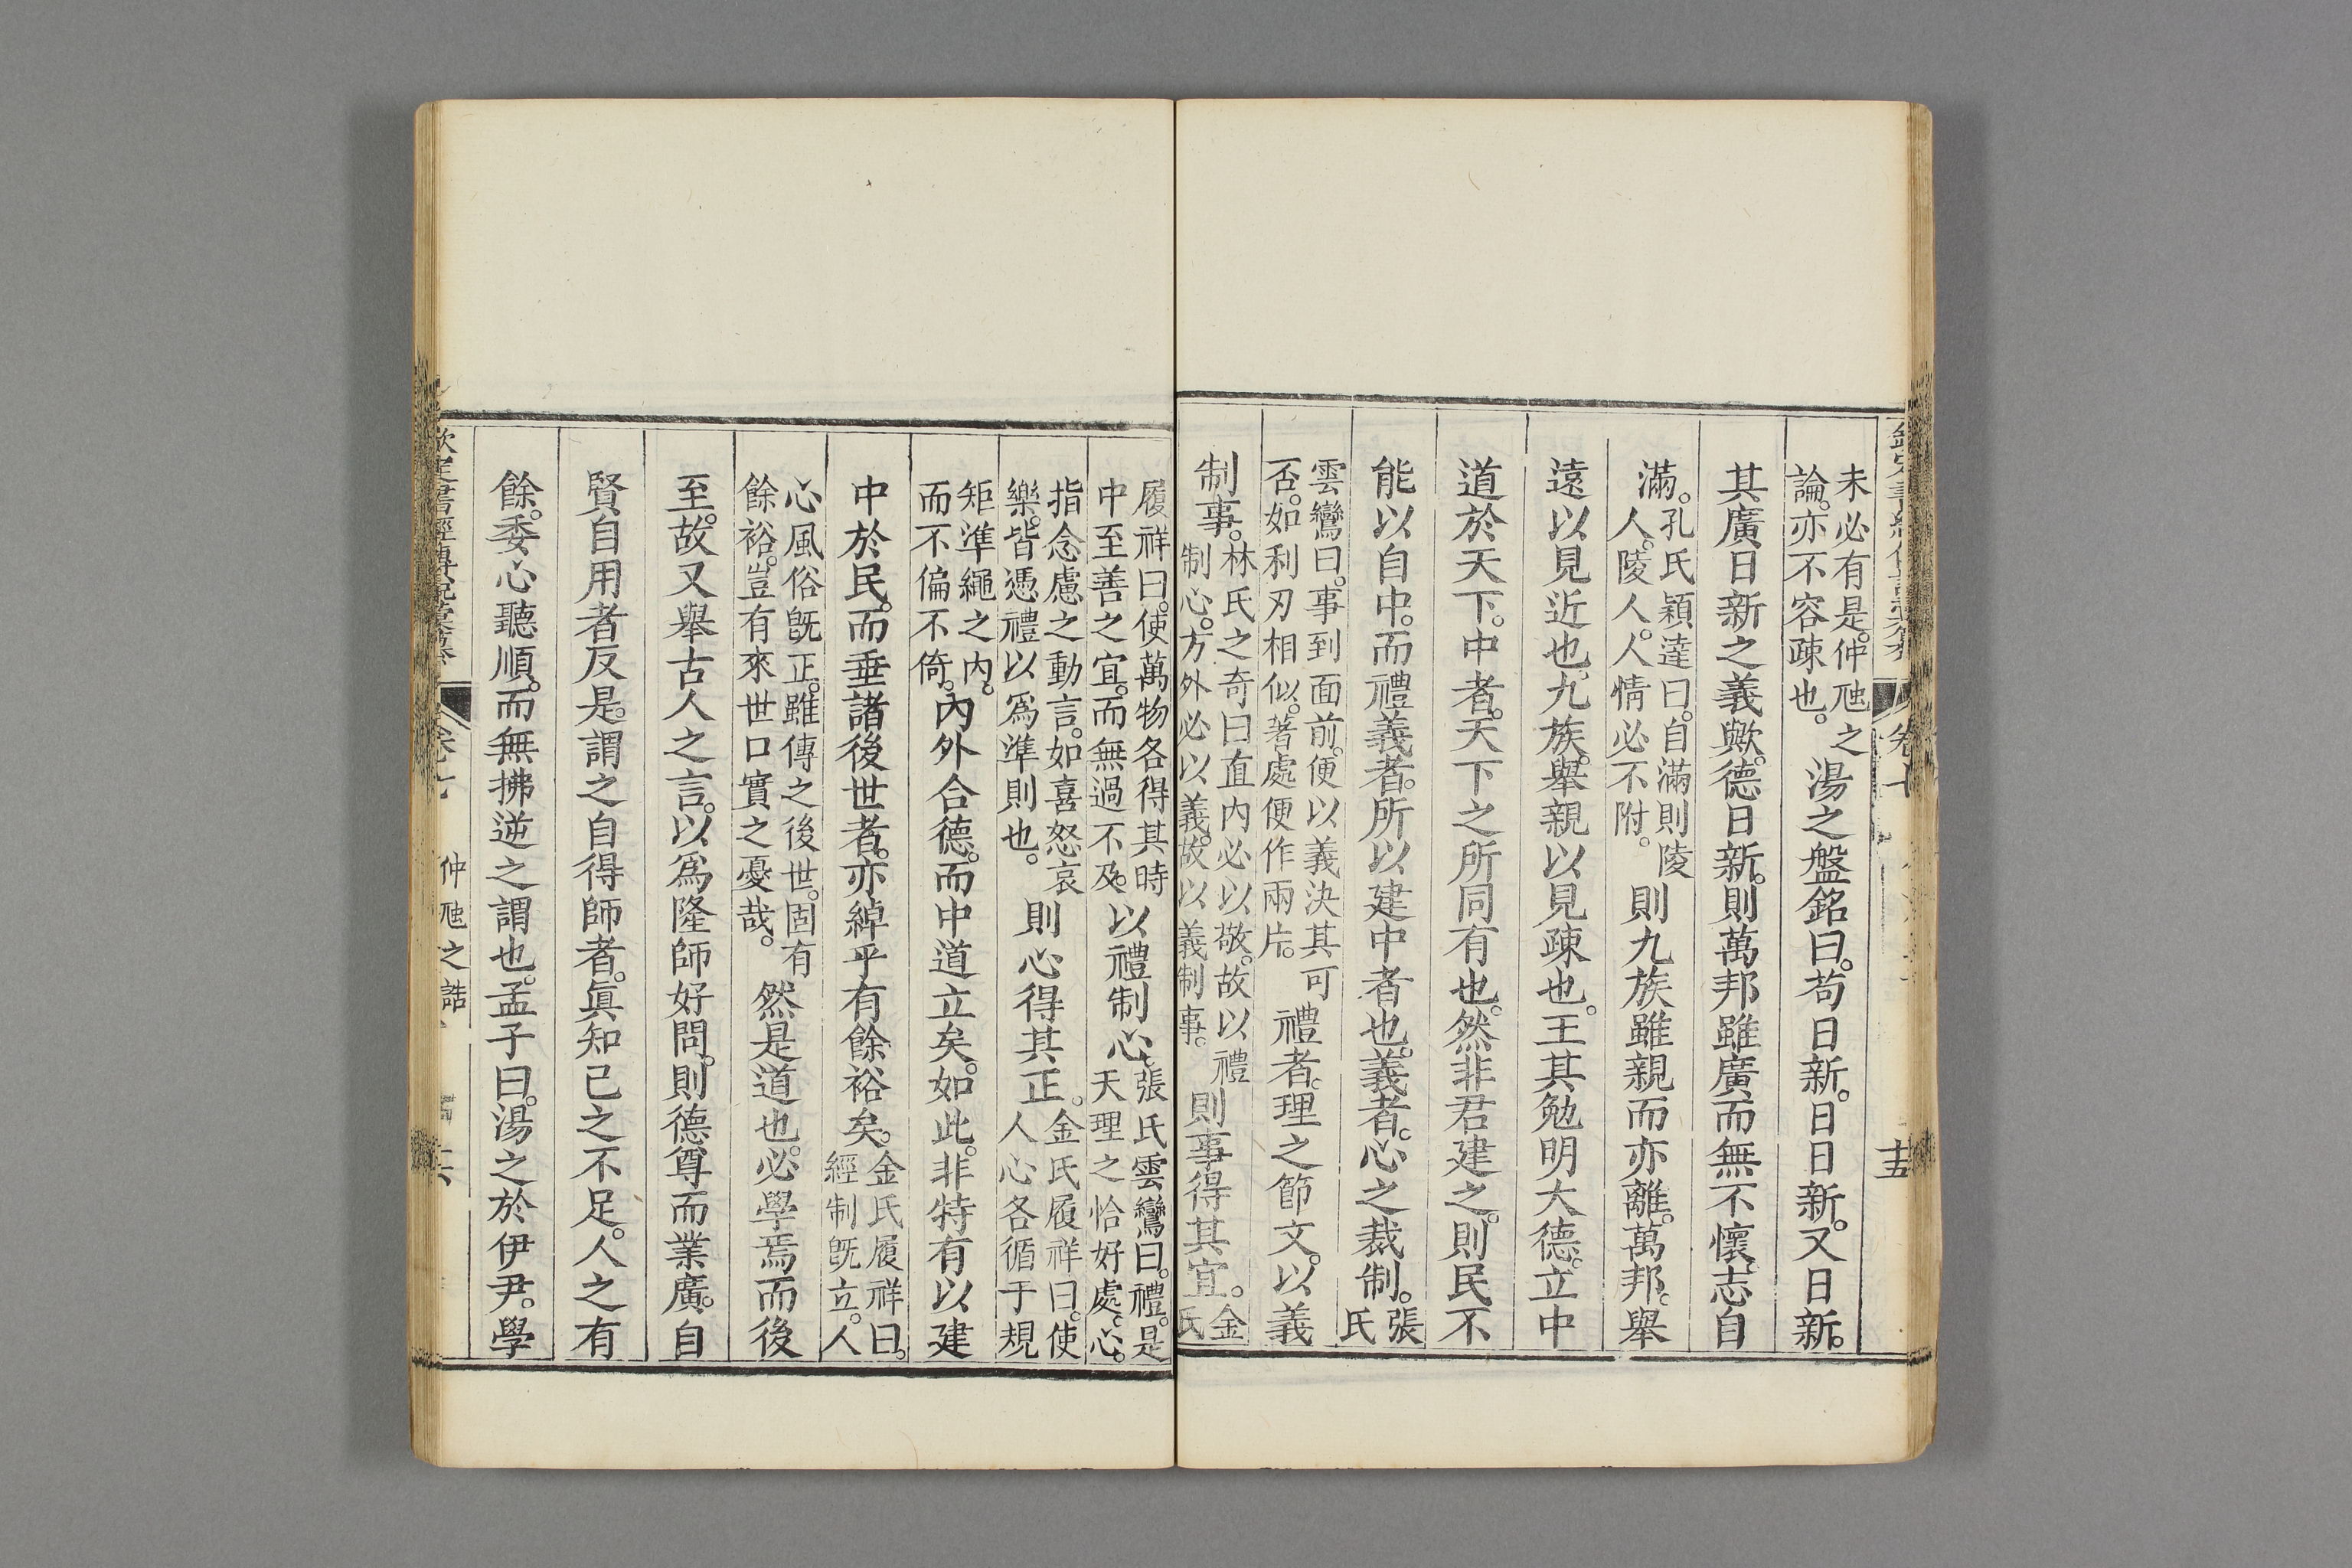 未必有是。仲虺之
論。亦不容疎也。
湯之盤銘曰。苟日新。日日新。又日新。
其廣日新之義歟。德日新。則萬邦雖廣而無不懷。志自
滿。
孔氏穎達曰。自滿則陵
人。陵人。人情必不附。
則九族雖親而亦離。萬邦。舉
遠以見近也。九族。舉親以見疎也。王其勉明大德。立中
道於天下。中者。天下之所同有也。然非君建之。則民不
能以自中。而禮義者。所以建中者也。義者。心之裁制。
張
氏
雲鸞曰。事到面前。便以義決其可
否。如利刃相似。著處便作兩片。
禮者。理之節文。以義
制事。
林氏之奇曰直內必以敬。故以禮
制心。方外必以義。故以義制事。
則事得其宜。
金
氏
履祥曰。使萬物各得其時
中至善之宜。而無過不及。
以禮制心。
張氏雲鸞曰。禮。是
天理之恰好處。心。
指念慮之動言。如喜怒哀
樂。皆憑禮以爲準則也。
則心得其正。
金氏履祥曰。使
人心各循于規
矩準繩之內。
而不偏不倚。
內外合德。而中道立矣。如此。非特有以建
中於民。而垂諸後世者。亦綽乎有餘裕矣。
金氏履祥曰。
經制旣立。人
心風俗旣正。雖傳之後世。固有
餘裕。豈有來世口實之憂哉。
然是道也。必學焉而後
至。故又舉古人之言。以爲隆師好問。則德尊而業廣。自
賢自用者反是。謂之自得師者。眞知己之不足。人之有
餘。委心聽順。而無拂逆之謂也。孟子曰。湯之於伊尹。學
仲虺之誥